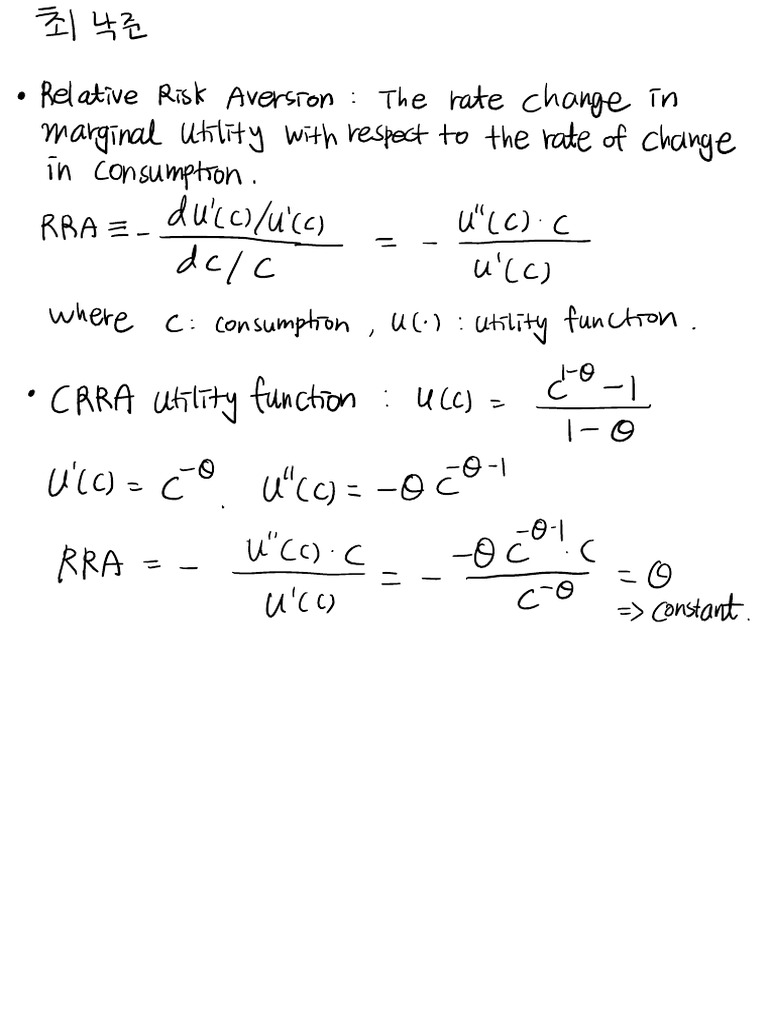 최낙준
• Relative Risk Aversion : The rate change in
marginal utility with respect to the rate of change
in consumption.
RRA ≡ - (du'(c)/u'(c)) / (dc/c) = - (u''(c)·c) / (u'(c))
where c : consumption , u(·) : utility function .
• CRRA utility function : u(c) = (c^{1-θ} - 1) / (1-θ)
u'(c) = c^{-θ} . u''(c) = -θ c^{-θ-1}
RRA = - (u''(c)·c) / (u'(c)) = - (-θ c^{-θ-1}·c) / (c^{-θ}) = θ
=> constant.